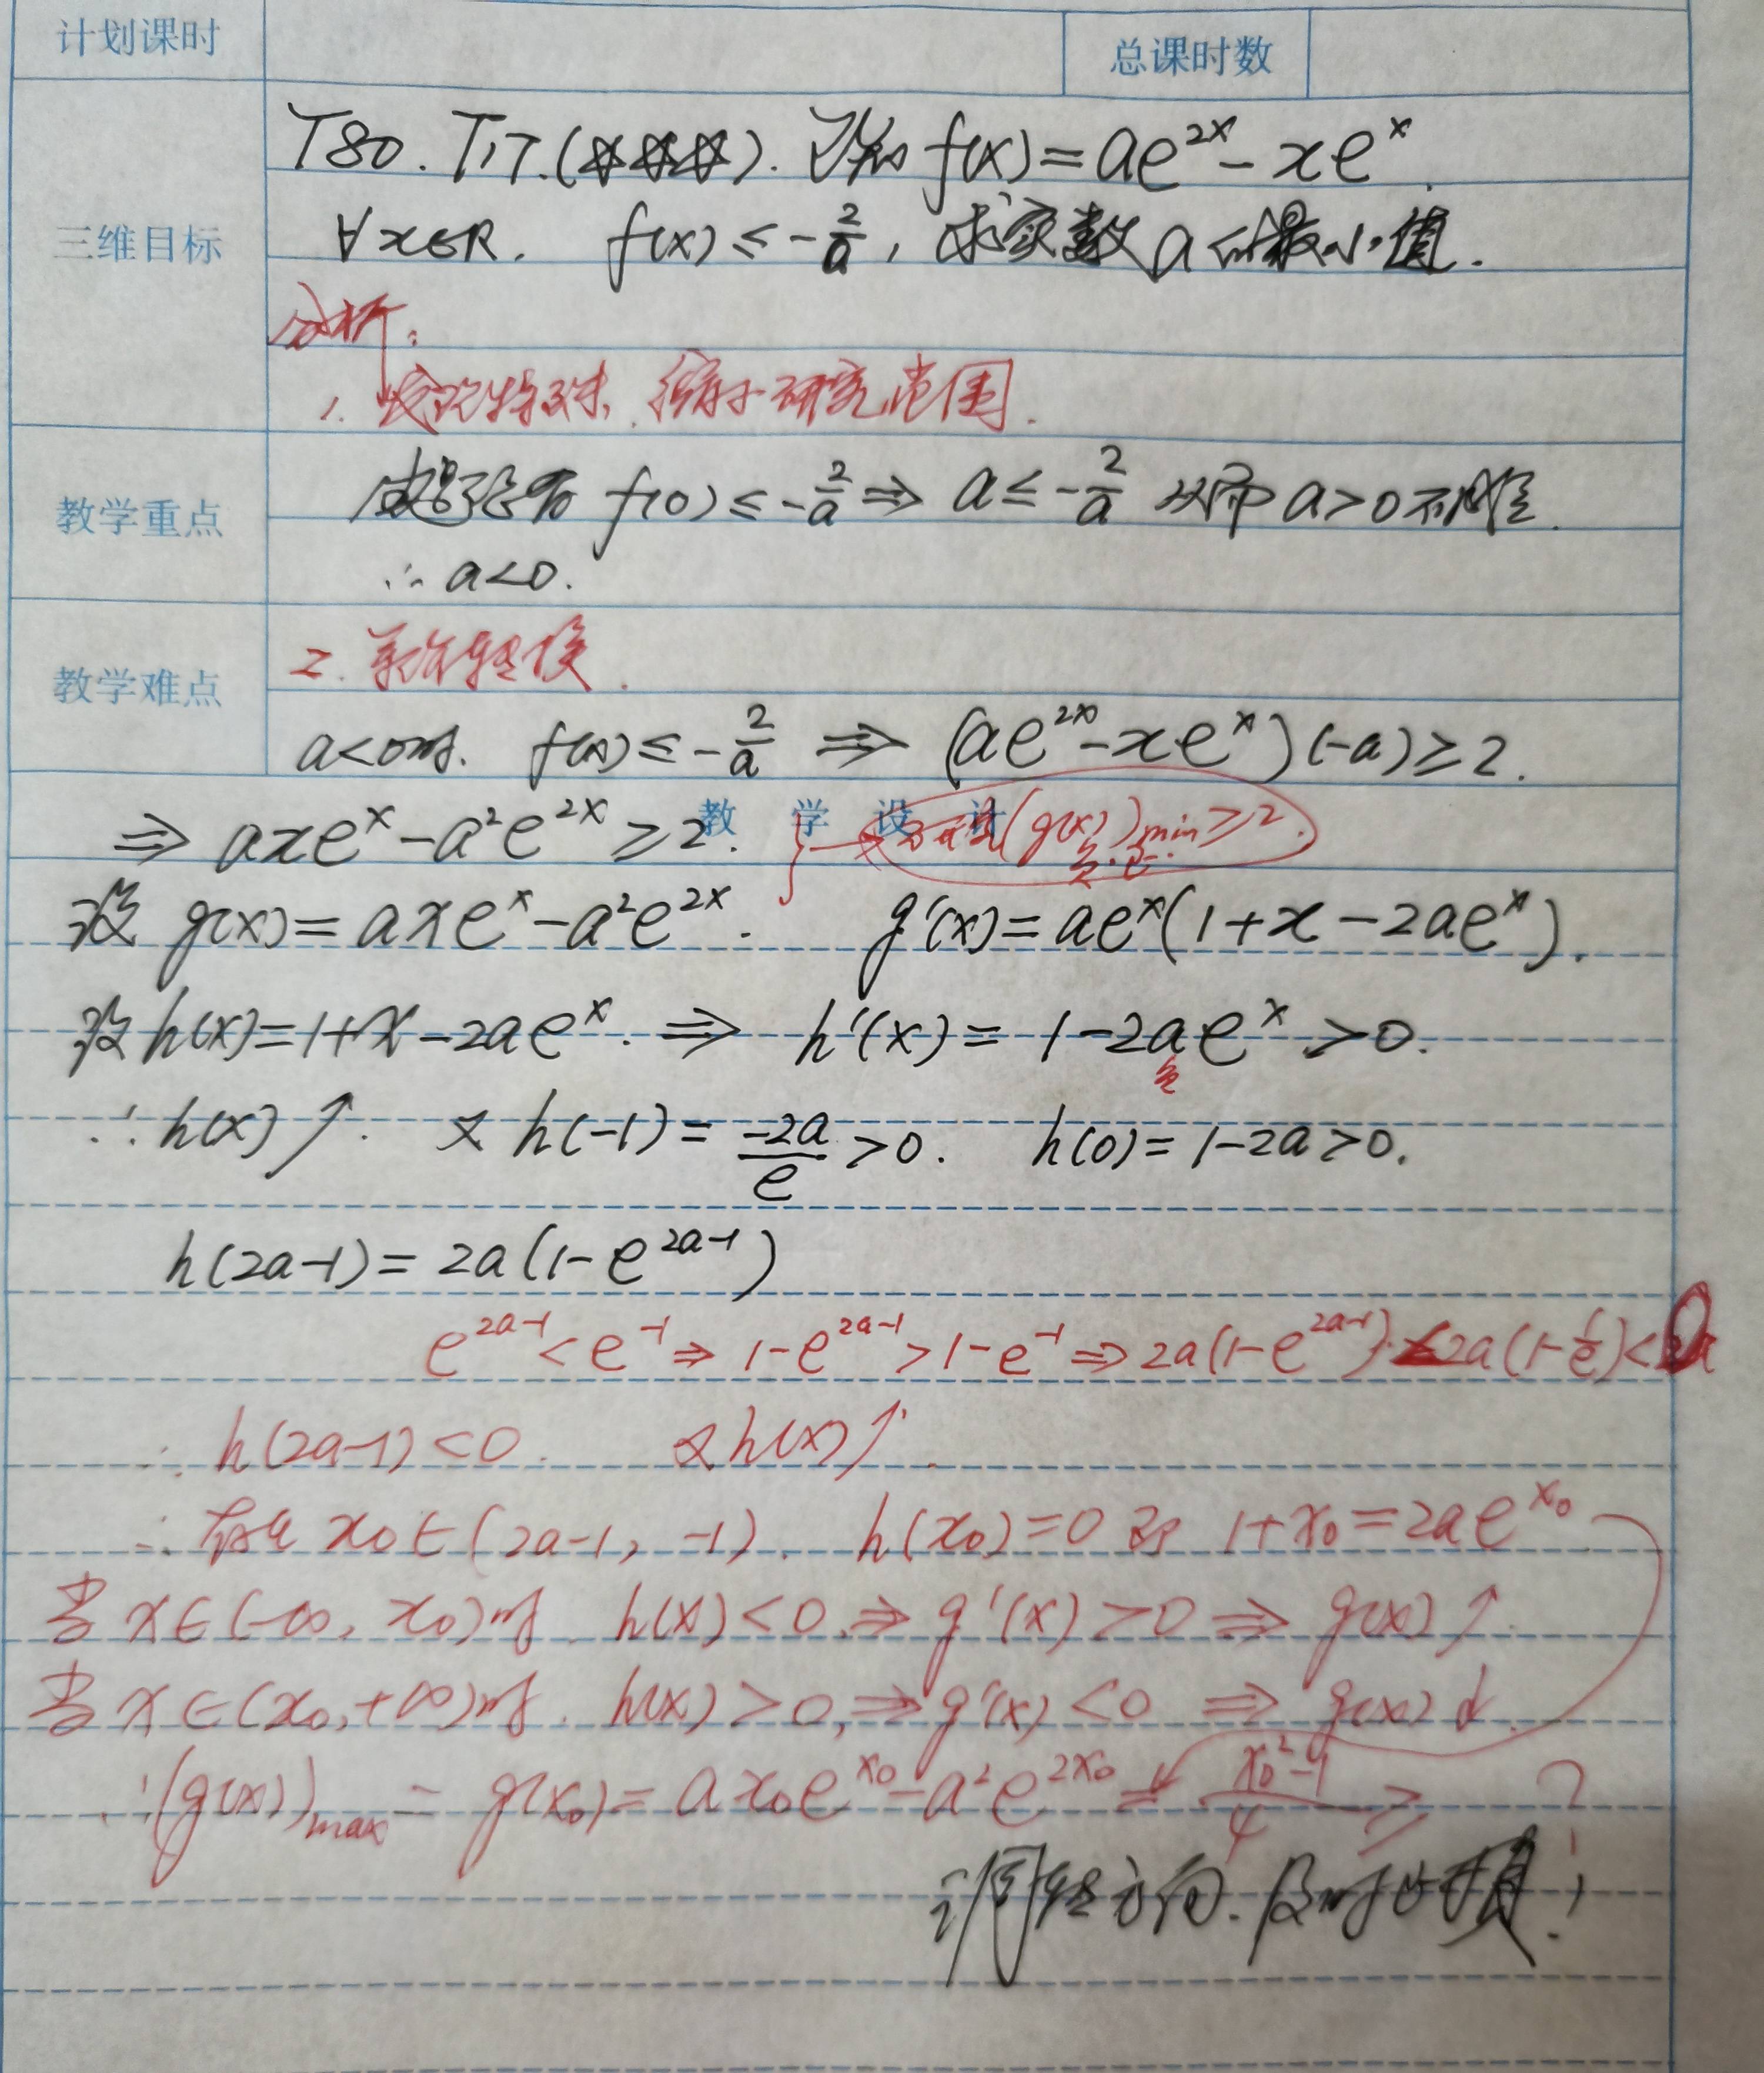 计划课时 总课时数
三维目标
T80. T17.(☆☆☆). 已知 f(x)=ae^{2x}-xe^x.
∀x∈R. f(x)≤-\frac{2}{a}, 求实数a的最小值.
分析:
1. 发现特殊, 缩小研究范围.
教学重点
由题设知 f(0)≤-\frac{2}{a}⇒ a≤-\frac{2}{a} 从而 a>0不成立.
∴ a<0.
教学难点
2. 等价转换.
a<0时. f(x)≤-\frac{2}{a} ⇒ (ae^{2x}-xe^x)(-a)≥2.
教学设计
⇒ axe^x-a²e^{2x}≥2. → (g(x))_{min}≥2.
设 g(x)=axe^x-a²e^{2x}. g'(x)=ae^x(1+x-2ae^x).
设 h(x)=1+x-2ae^x. ⇒ h'(x)=1-2ae^x>0.
负
∴h(x)↑. 又 h(-1)=\frac{-2a}{e}>0. h(0)=1-2a>0.
h(2a-1)=2a(1-e^{2a-1})
e^{2a-1}<e^{-1}⇒1-e^{2a-1}>1-e^{-1}⇒2a(1-e^{2a-1})<2a(1-\frac{1}{e})<0
∴ h(2a-1)<0. 又h(x)↑.
∴ 存在 x₀∈(2a-1, -1). h(x₀)=0 即 1+x₀=2ae^{x₀}
当 x∈(-∞, x₀)时. h(x)<0.⇒g'(x)>0⇒g(x)↑.
当 x∈(x₀,+∞)时. h(x)>0,⇒g'(x)<0 ⇒ g(x)↓.
∴(g(x))_{max}=g(x₀)=ax₀e^{x₀}-a²e^{2x₀}=\frac{x₀²-1}{4} ≥ ?